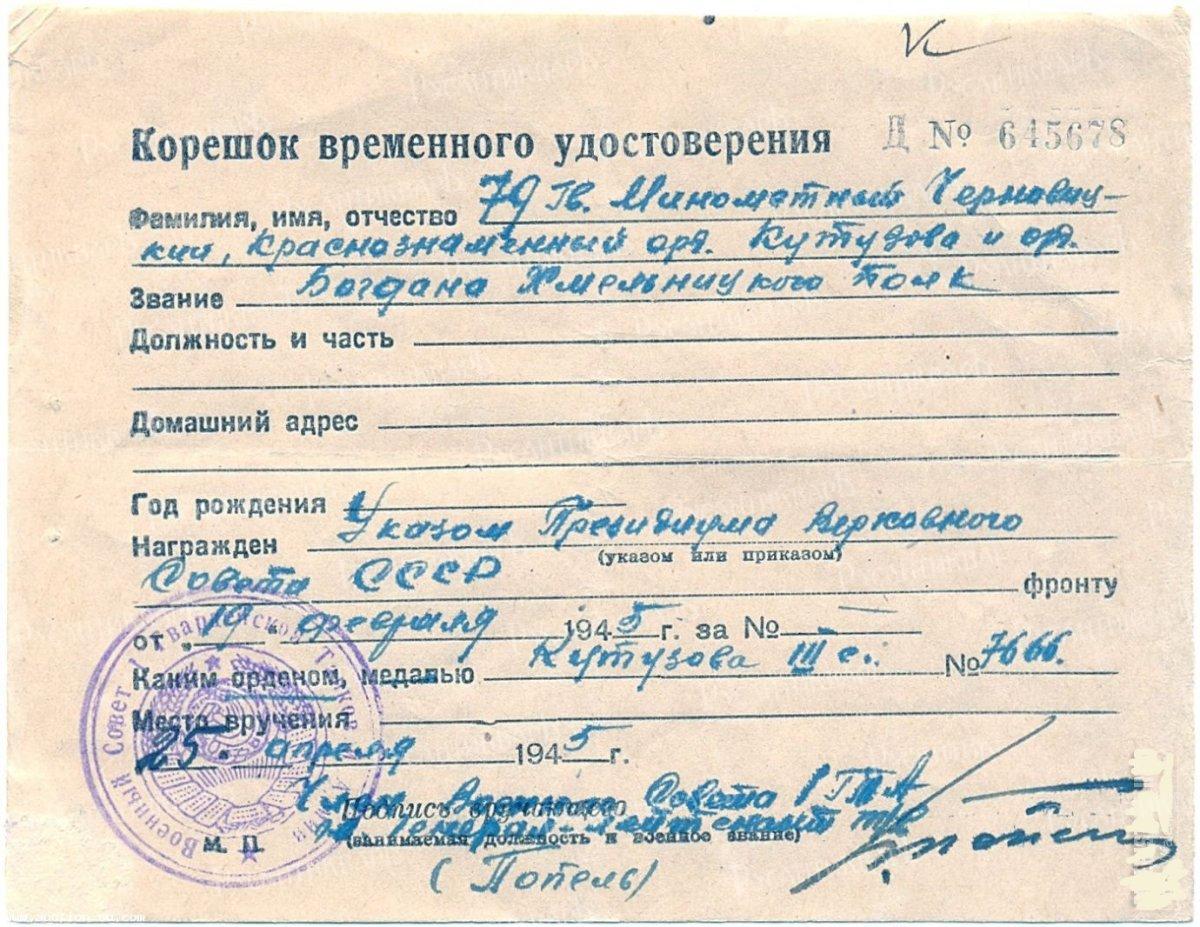 К
Корешок временного удостоверения Д № 645678
Фамилия, имя, отчество 79 Гв. Минометный Черновиц-
кий, Краснознаменный орд. Кутузова и орд.
Звание Богдана Хмельницкого Полк
Должность и часть
Домашний адрес
Год рождения
Награжден Указом Президиума Верховного
(указом или приказом)
Совета СССР фронту
от 19 февраля 1945 г. за № —
Каким орденом, медалью Кутузова III с. № 7666.
Место вручения
25. апреля 1945 г.
Член Военного Совета 1 ГТА
Подпись вручающего
генерал-лейтенант тв
(занимаемая должность и военное звание)
М. П.
(Попель)
Военный Совет 1 Гвардейской Танковой Армии